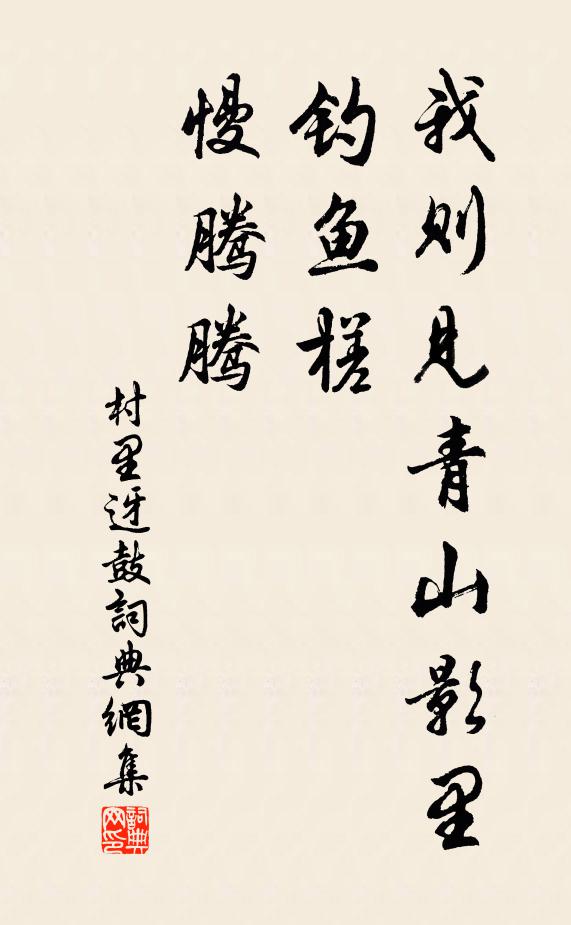 我则见青山影里
钓鱼槎
慢腾腾
村里迓鼓詞典網集
詞典
网印